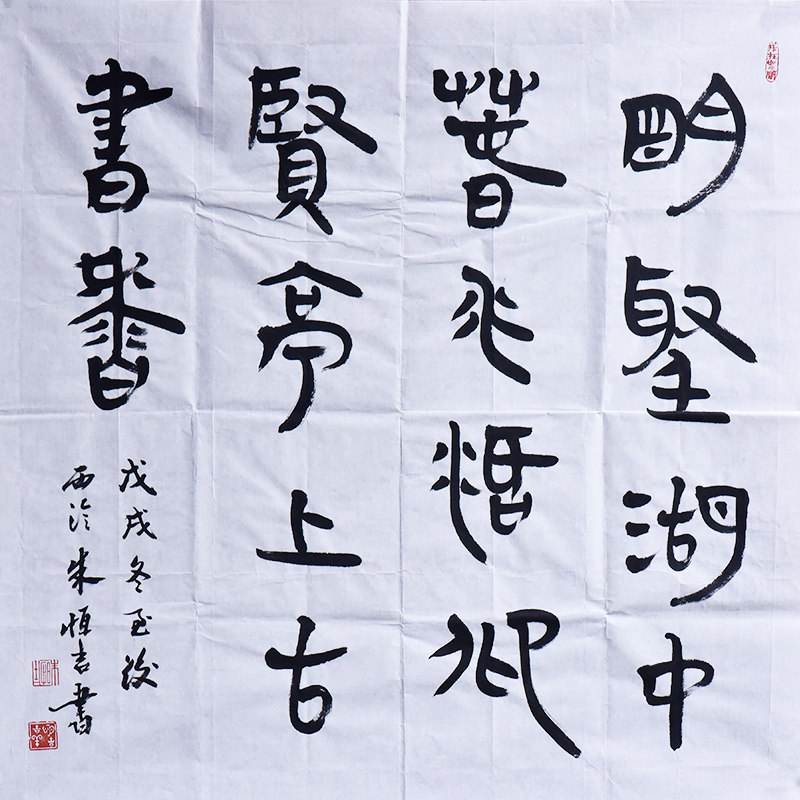 明聖湖中
春水恬仰
賢亭上古
書香
戊戌冬至後
西泠朱恒吉書